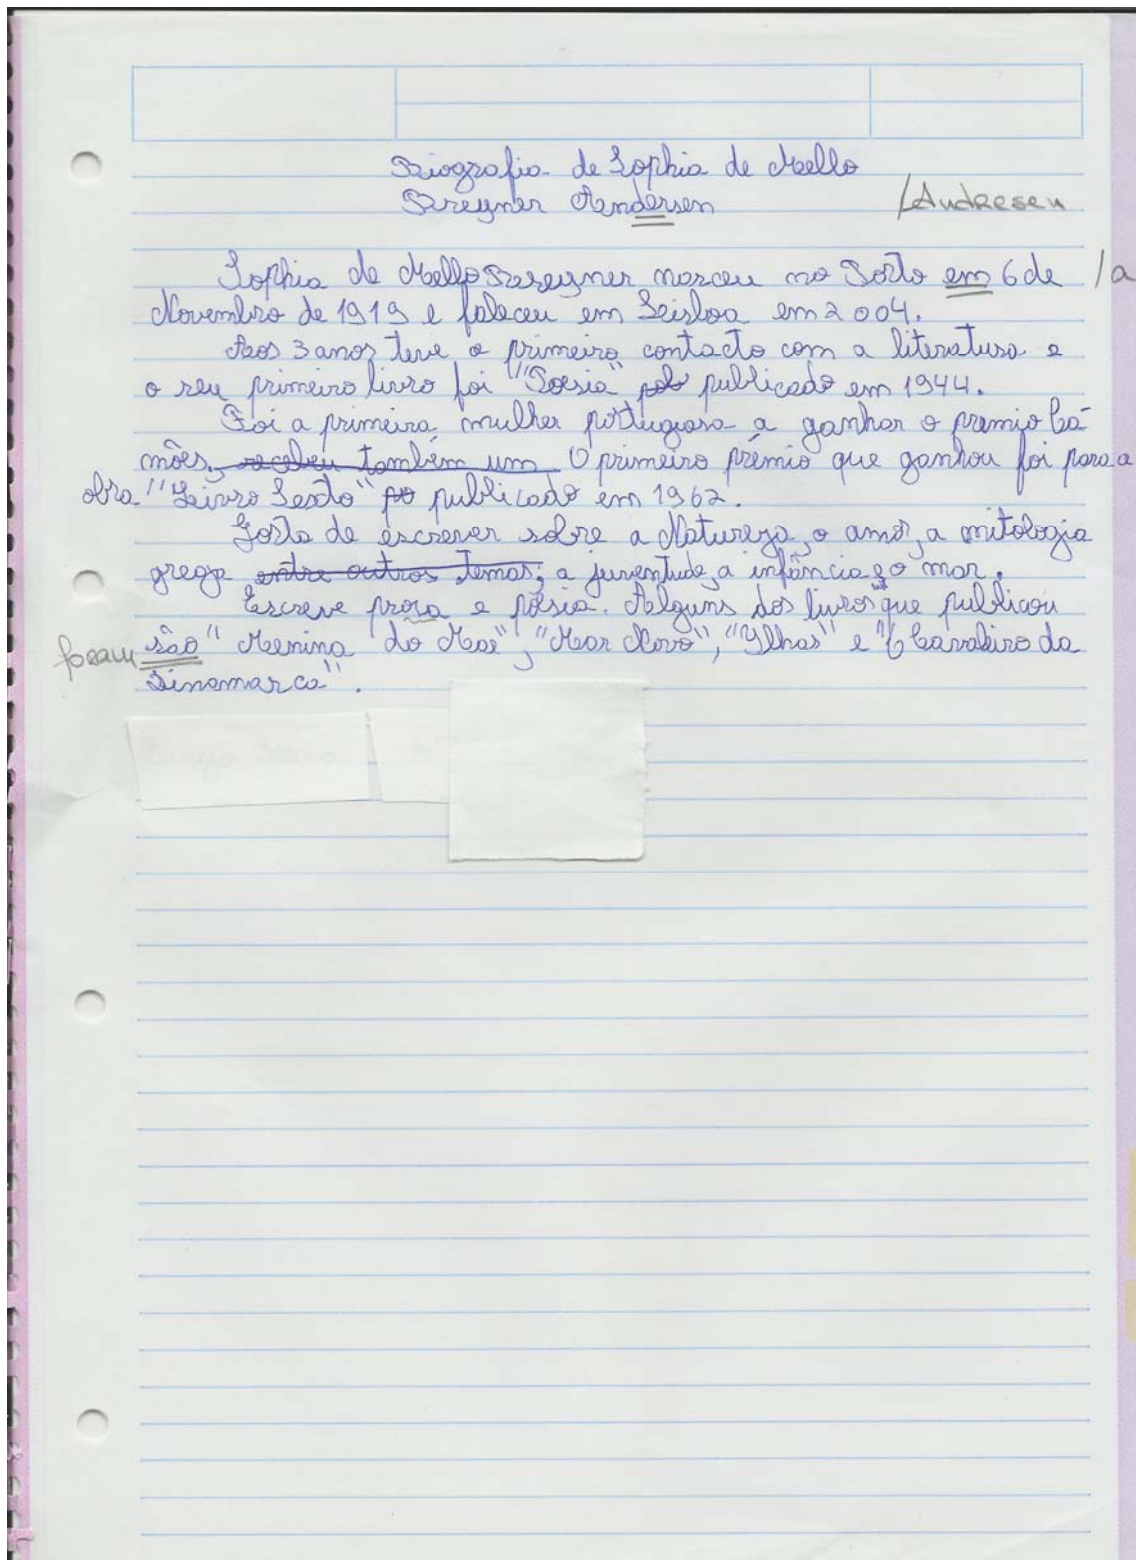 Biografia de Sophia de Mello
Breyner Andersen /Andresen
Sophia de Mello Breyner nasceu no Porto em 6 de /a
Novembro de 1919 e faleceu em Lisboa em 2004.
Aos 3 anos teve o primeiro contacto com a literatura e
o seu primeiro livro foi "Poesia" publicado em 1944.
Foi a primeira mulher portuguesa a ganhar o premio Ca-
mões, recebeu também um O primeiro prémio que ganhou foi para a
obra "Livro Sexto" po publicado em 1962.
Gosta de escrever sobre a Natureza, o amor, a mitologia
grega entre outros temas, a juventude, a infância, o mar.
Escreve prosa e poesia. Alguns dos livros que publicou
foram são "Menina do Mar", "Mar Novo", "Ilhas" e "O Cavaleiro da
Dinamarca".